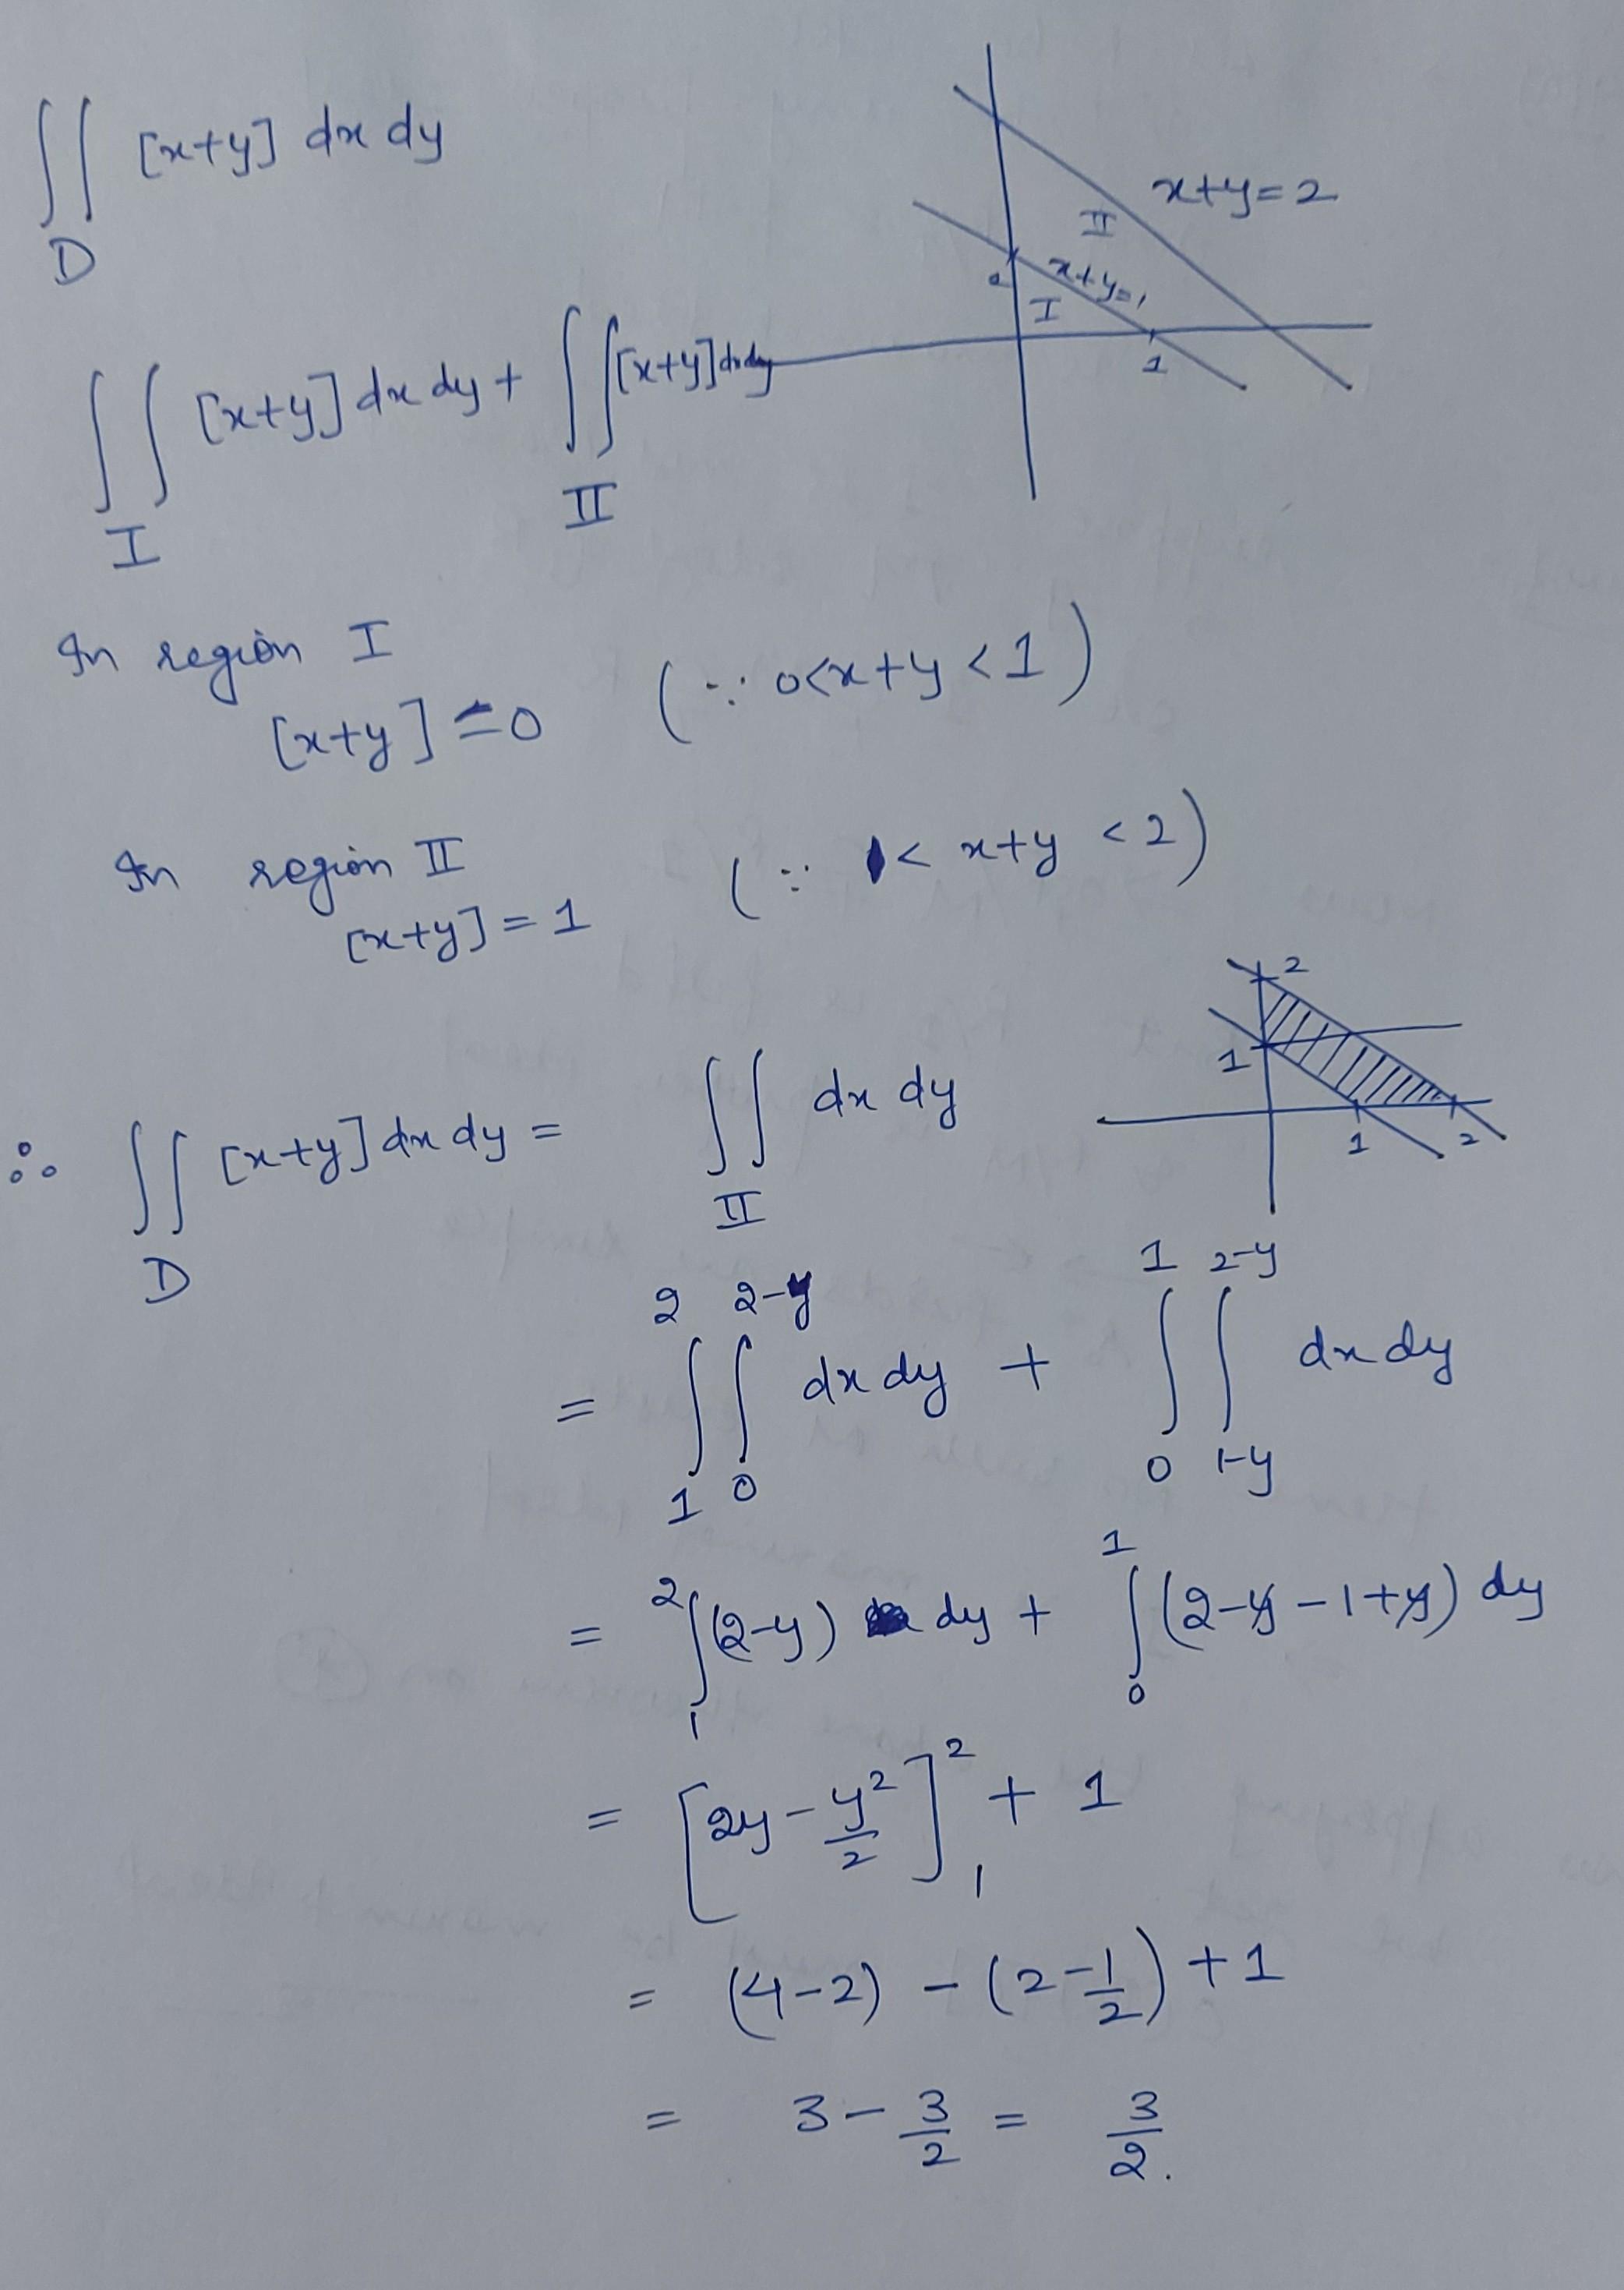 ∬_D [x+y] dx dy
x+y=2
II
x+y=1
I
1
∬_I [x+y] dx dy + ∬_II [x+y] dx dy
In region I
[x+y] = 0 (∵ 0<x+y<1)
In region II
[x+y] = 1 (∵ 1< x+y <2)
2
1
1 2
∴ ∬_D [x+y] dx dy = ∬_II dx dy
= ∫_1^2 ∫_0^{2-y} dx dy + ∫_0^1 ∫_{1-y}^{2-y} dx dy
= ∫_1^2 (2-y) dy + ∫_0^1 (2-y-1+y) dy
= [2y - y²/2]_1^2 + 1
= (4-2) - (2-1/2) + 1
= 3 - 3/2 = 3/2.